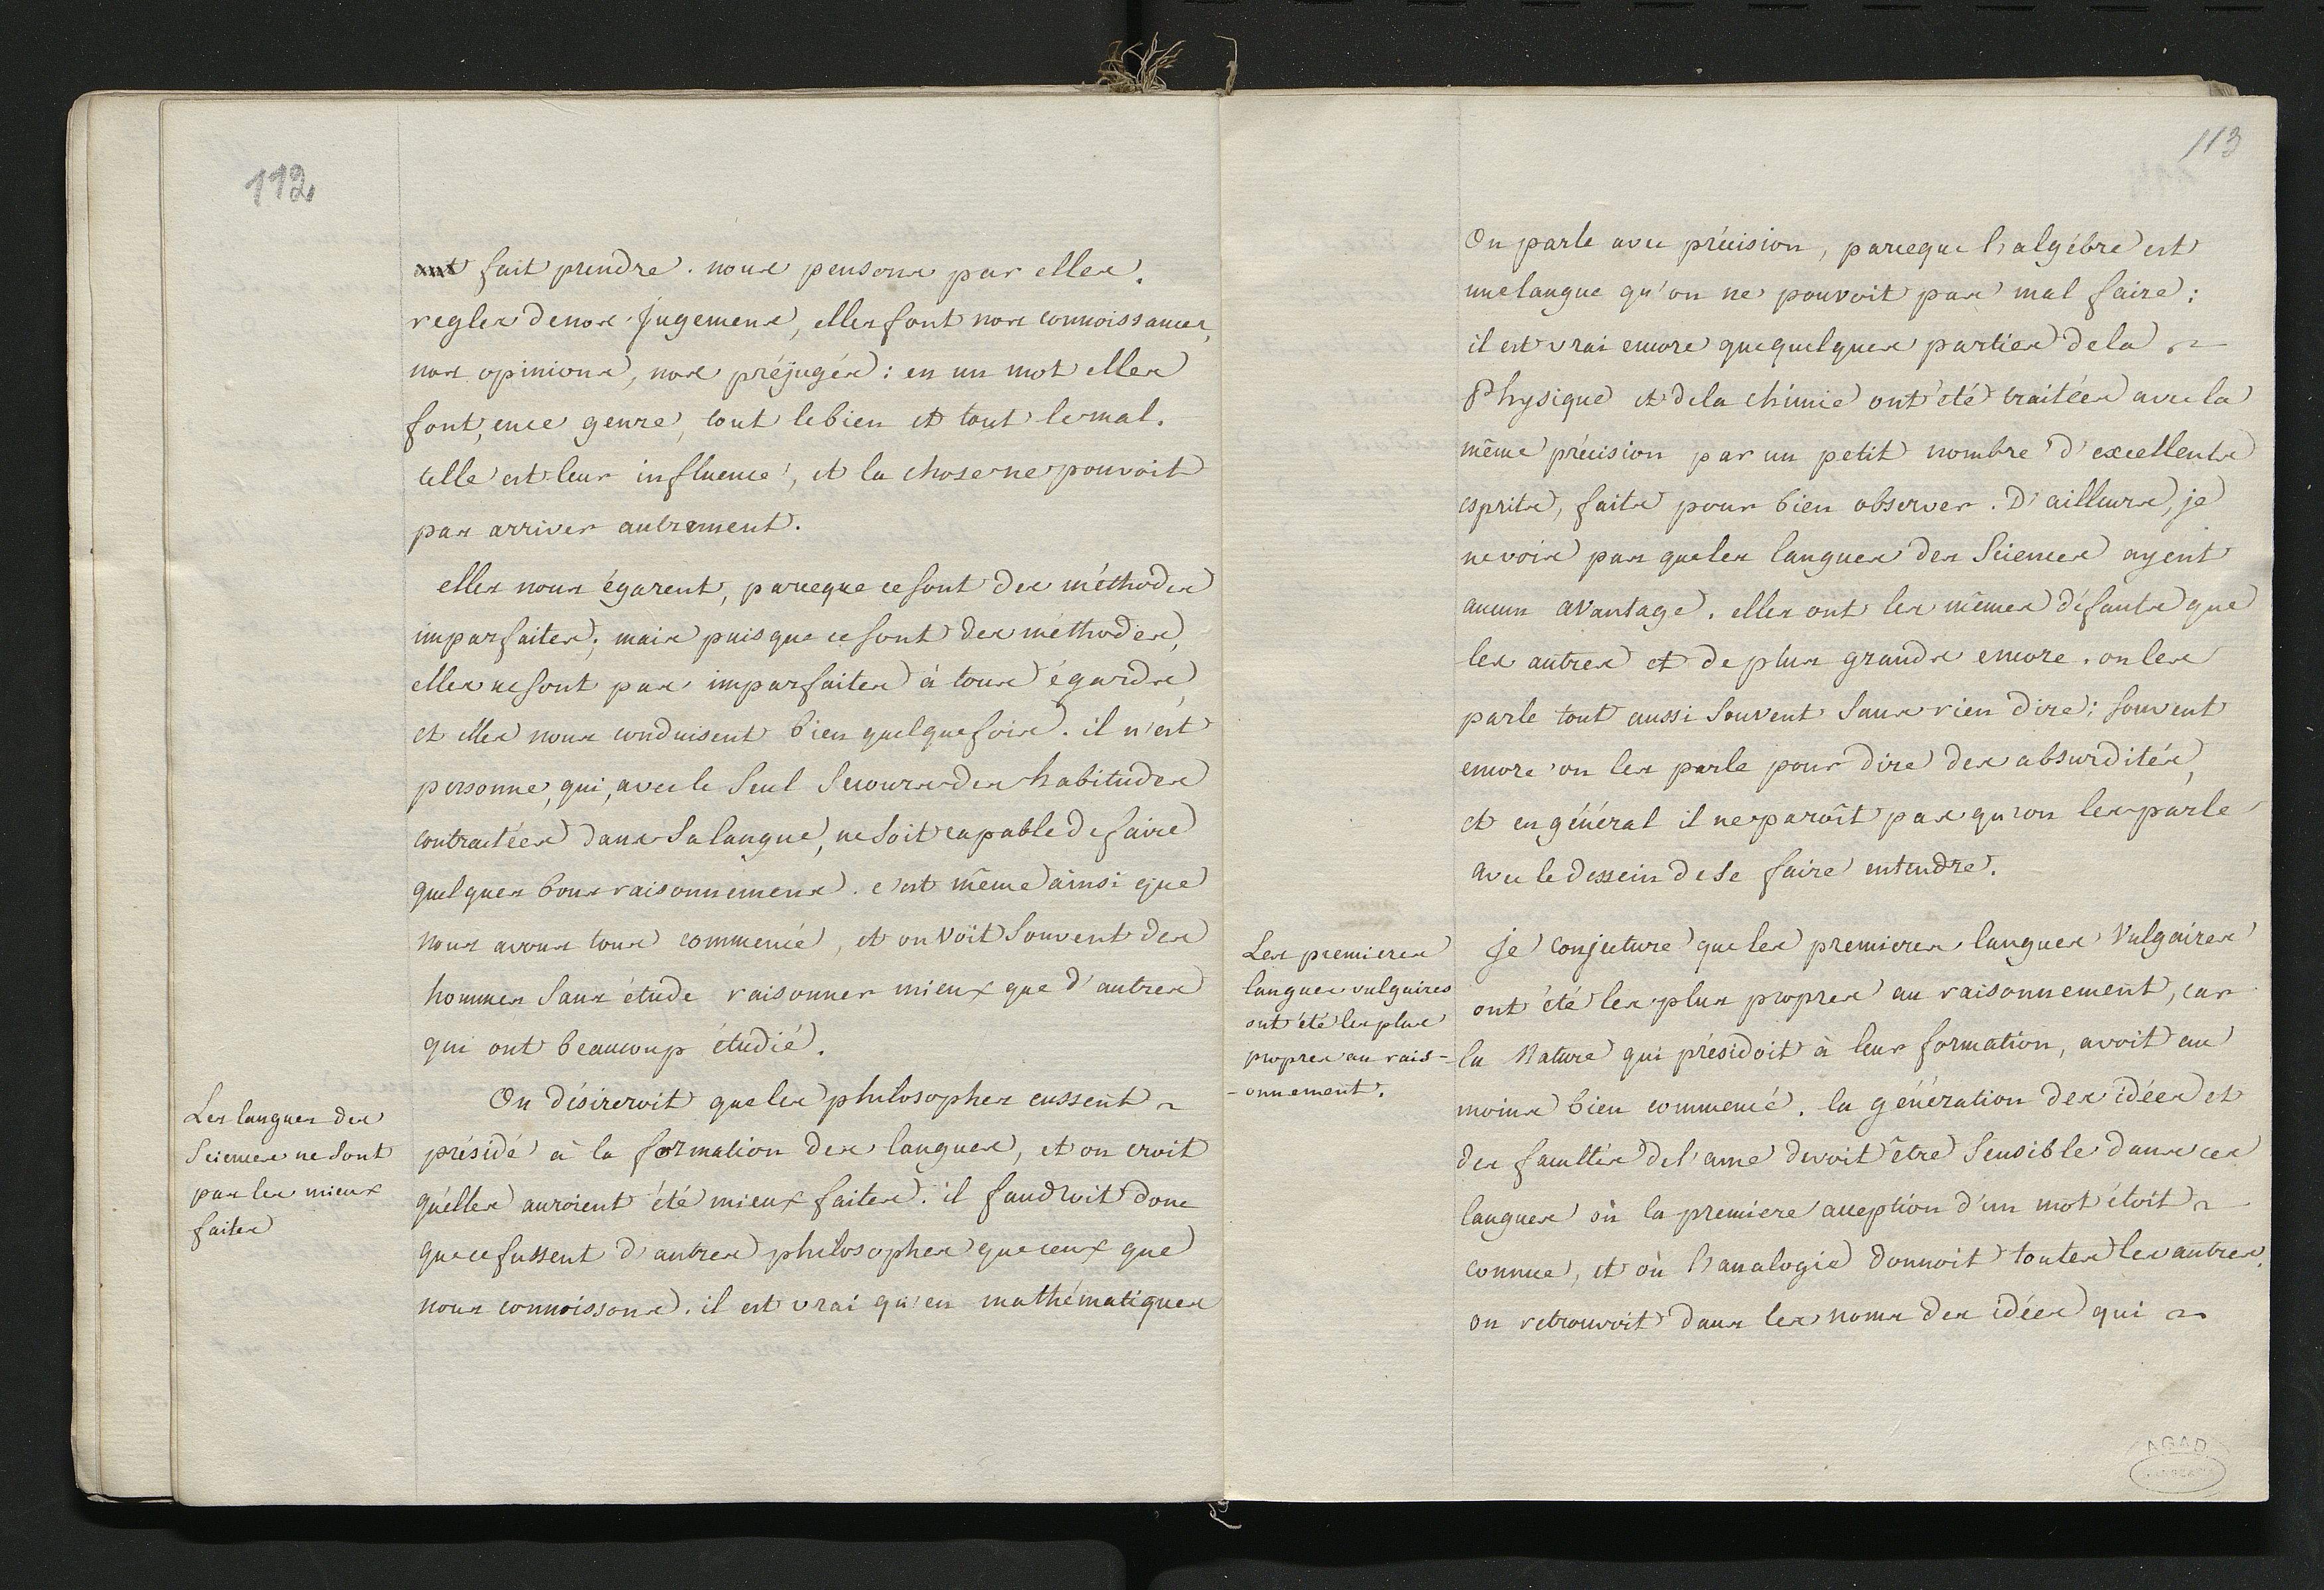 112
ont fait prendre. nous pensons par elles.
regles de nos Jugemens, elles font nos connoissances,
nos opinions, nos préjugés : en un mot elles
font, ence genre, tout le bien et tout le mal.
telle est leur influence, et la chose ne pouvoit
pas arriver autrement.
elles nous égarent, parceque ce sont des méthodes
imparfaites; mais puisque ce sont des méthodes,
elles ne sont pas imparfaites à tous égards,
et elles nous conduisent bien quelquefois. il n'est
personne, qui, avec le Seul Secours des habitudes
contractées dans Sa langue, ne Soit capable de faire
quelques bons raisonnemens. c'est même ainsi que
nous avons tous commencé, et on Voit Souvent des
hommes Sans étude raisonner mieux que d'autres
qui ont beaucoup étudié.
Les langues des
Sciences ne Sont
pas les mieux
faites
On désireroit que les philosophes eussent
présidé à la formation des langues, et on croit
qu'elles auroient été mieux faites. il faudroit donc
que ce fussent d'autres philosophes que ceux que
nous connoissons. il est vrai qu'en mathématiques
113
On parle avec précision, parceque l'algébre est
une langue qu'on ne pouvoit pas mal faire;
il est vrai encore que quelques parties de la
Physique et de la chimie ont été traitées avec la
même précision par un petit nombre d'excellents
esprits, faits pour bien observer. D'ailleurs, je
ne vois pas que les langues des Sciences ayent
aucun avantage. elles ont les mêmes défauts que
les autres et de plus grands encore. on les
parle tout aussi Souvent Sans rien dire; souvent
encore on les parle pour dire des absurdités,
et en général il ne paroît pas qu'on les parle
avec le dessein de Se faire entendre.
Les premieres
langues vulgaires
ont été les plus
propres au rais-
-onnement.
Je conjecture que les premieres langues Vulgaires
ont été les plus propres au raisonnement, car
la Nature qui présidoit à leur formation, avoit au
moins bien commencé. la génération des idées et
des facultés de l'ame devoit être Sensible dans ces
langues où la premiere acception d'un mot étoit
connue, et où l'analogie donnoit toutes les autres.
on retrouvoit dans les noms des idées qui
AGAD